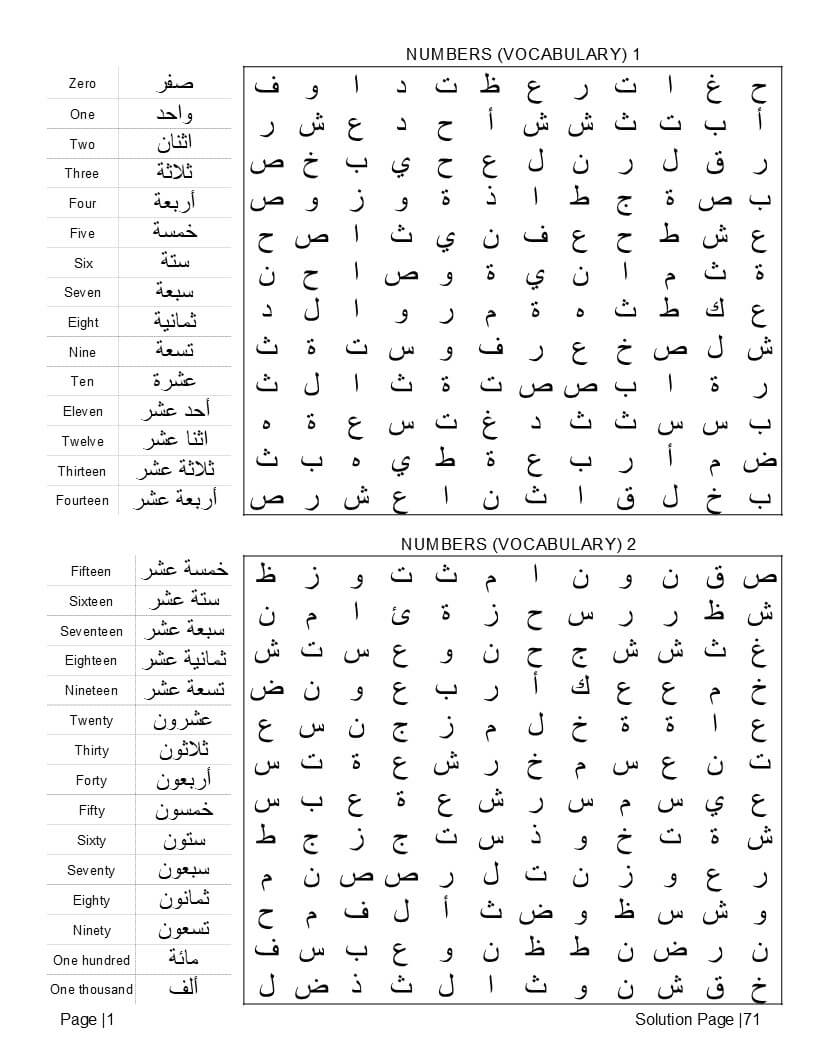 NUMBERS (VOCABULARY) 1
Zero صفر
One واحد
Two اثنان
Three ثلاثة
Four أربعة
Five خمسة
Six ستة
Seven سبعة
Eight ثمانية
Nine تسعة
Ten عشرة
Eleven أحد عشر
Twelve اثنا عشر
Thirteen ثلاثة عشر
Fourteen أربعة عشر
ح غ ا ت ر ع ظ ت د ا و ف
أ ب ت ث ش ش أ ح د ع ش ر
ر ق ل ر ن ل ع ح ي ب خ ص
ب ص ة ج ط ا ذ ة و ز و ص
ع ش ط ح ع ف ن ي ث ا ص ح
ة ث م ا ن ي ة و ص ا ح ن
ع ك ط ث ه ة م ر و ا ل د
ش ل ص خ ع ر ف و س ت ة ث
ر ة ا ب ص ص ت ة ث ا ل ث
ب س س ث ث د غ ت س ع ة ه
ض م أ ر ب ع ة ط ي ه ب ث
ب خ ل ق ا ث ن ا ع ش ر ص
NUMBERS (VOCABULARY) 2
Fifteen خمسة عشر
Sixteen ستة عشر
Seventeen سبعة عشر
Eighteen ثمانية عشر
Nineteen تسعة عشر
Twenty عشرون
Thirty ثلاثون
Forty أربعون
Fifty خمسون
Sixty ستون
Seventy سبعون
Eighty ثمانون
Ninety تسعون
One hundred مائة
One thousand ألف
ص ق ن و ن ا م ث ت و ز ظ
ش ظ ر ر س ح ز ة ئ ا م ن
غ ث ش ش ج ح ن و ع س ت ش
خ م ع ع ك أ ر ب ع و ن ض
ع ا ة ة خ ل م ز ج ن س ع
ت ن ع س م خ ر ش ع ة ت س
ع ي س م س ر ش ع ة ع ب س
ش ة ت خ و ذ س ت ج ز ج ط
ر ع و ز ن ت ل ر ص ص ن م
و ش س ظ و ض ث أ ل ف م ح
ن ر ض ن ط ظ ن و ع ب س ف
خ ق ش ن و ث ا ل ث ذ ض ل
Page |1
Solution Page |71